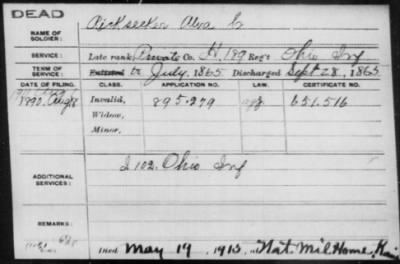 DEAD
NAME OF SOLDIER: Rickseeker Alva C
SERVICE: Late rank Private Co. H, 189 Reg't Ohio Inf
TERM OF SERVICE: Enlisted to July, 1865 Discharged Sept 28, 1865
DATE OF FILING. CLASS. APPLICATION NO. LAW. CERTIFICATE NO.
1890, Aug 8 Invalid, 895.279 651.516
Widow,
Minor,
ADDITIONAL SERVICES: I 102. Ohio Inf
REMARKS:
Died May 19, 1913, Nat. Mil Home, Kan